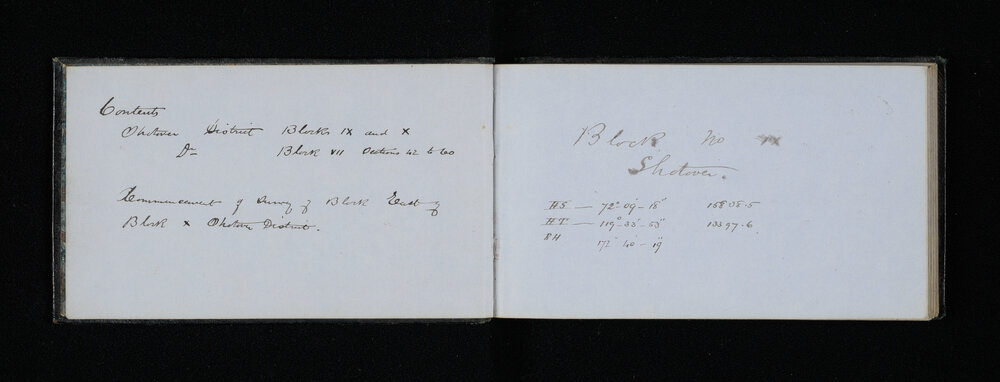 Contents
Shotover District Blocks IX and X
Do Block VII Sections 42 to 60
Commencement of Survey of Block East of
Block X Shotover District.
Block No IX
Shotover.
HS — 72° 09' — 18" 15808.5
HT — 119° 33' — 53" 13397.6
8H 172° 40' — 19"